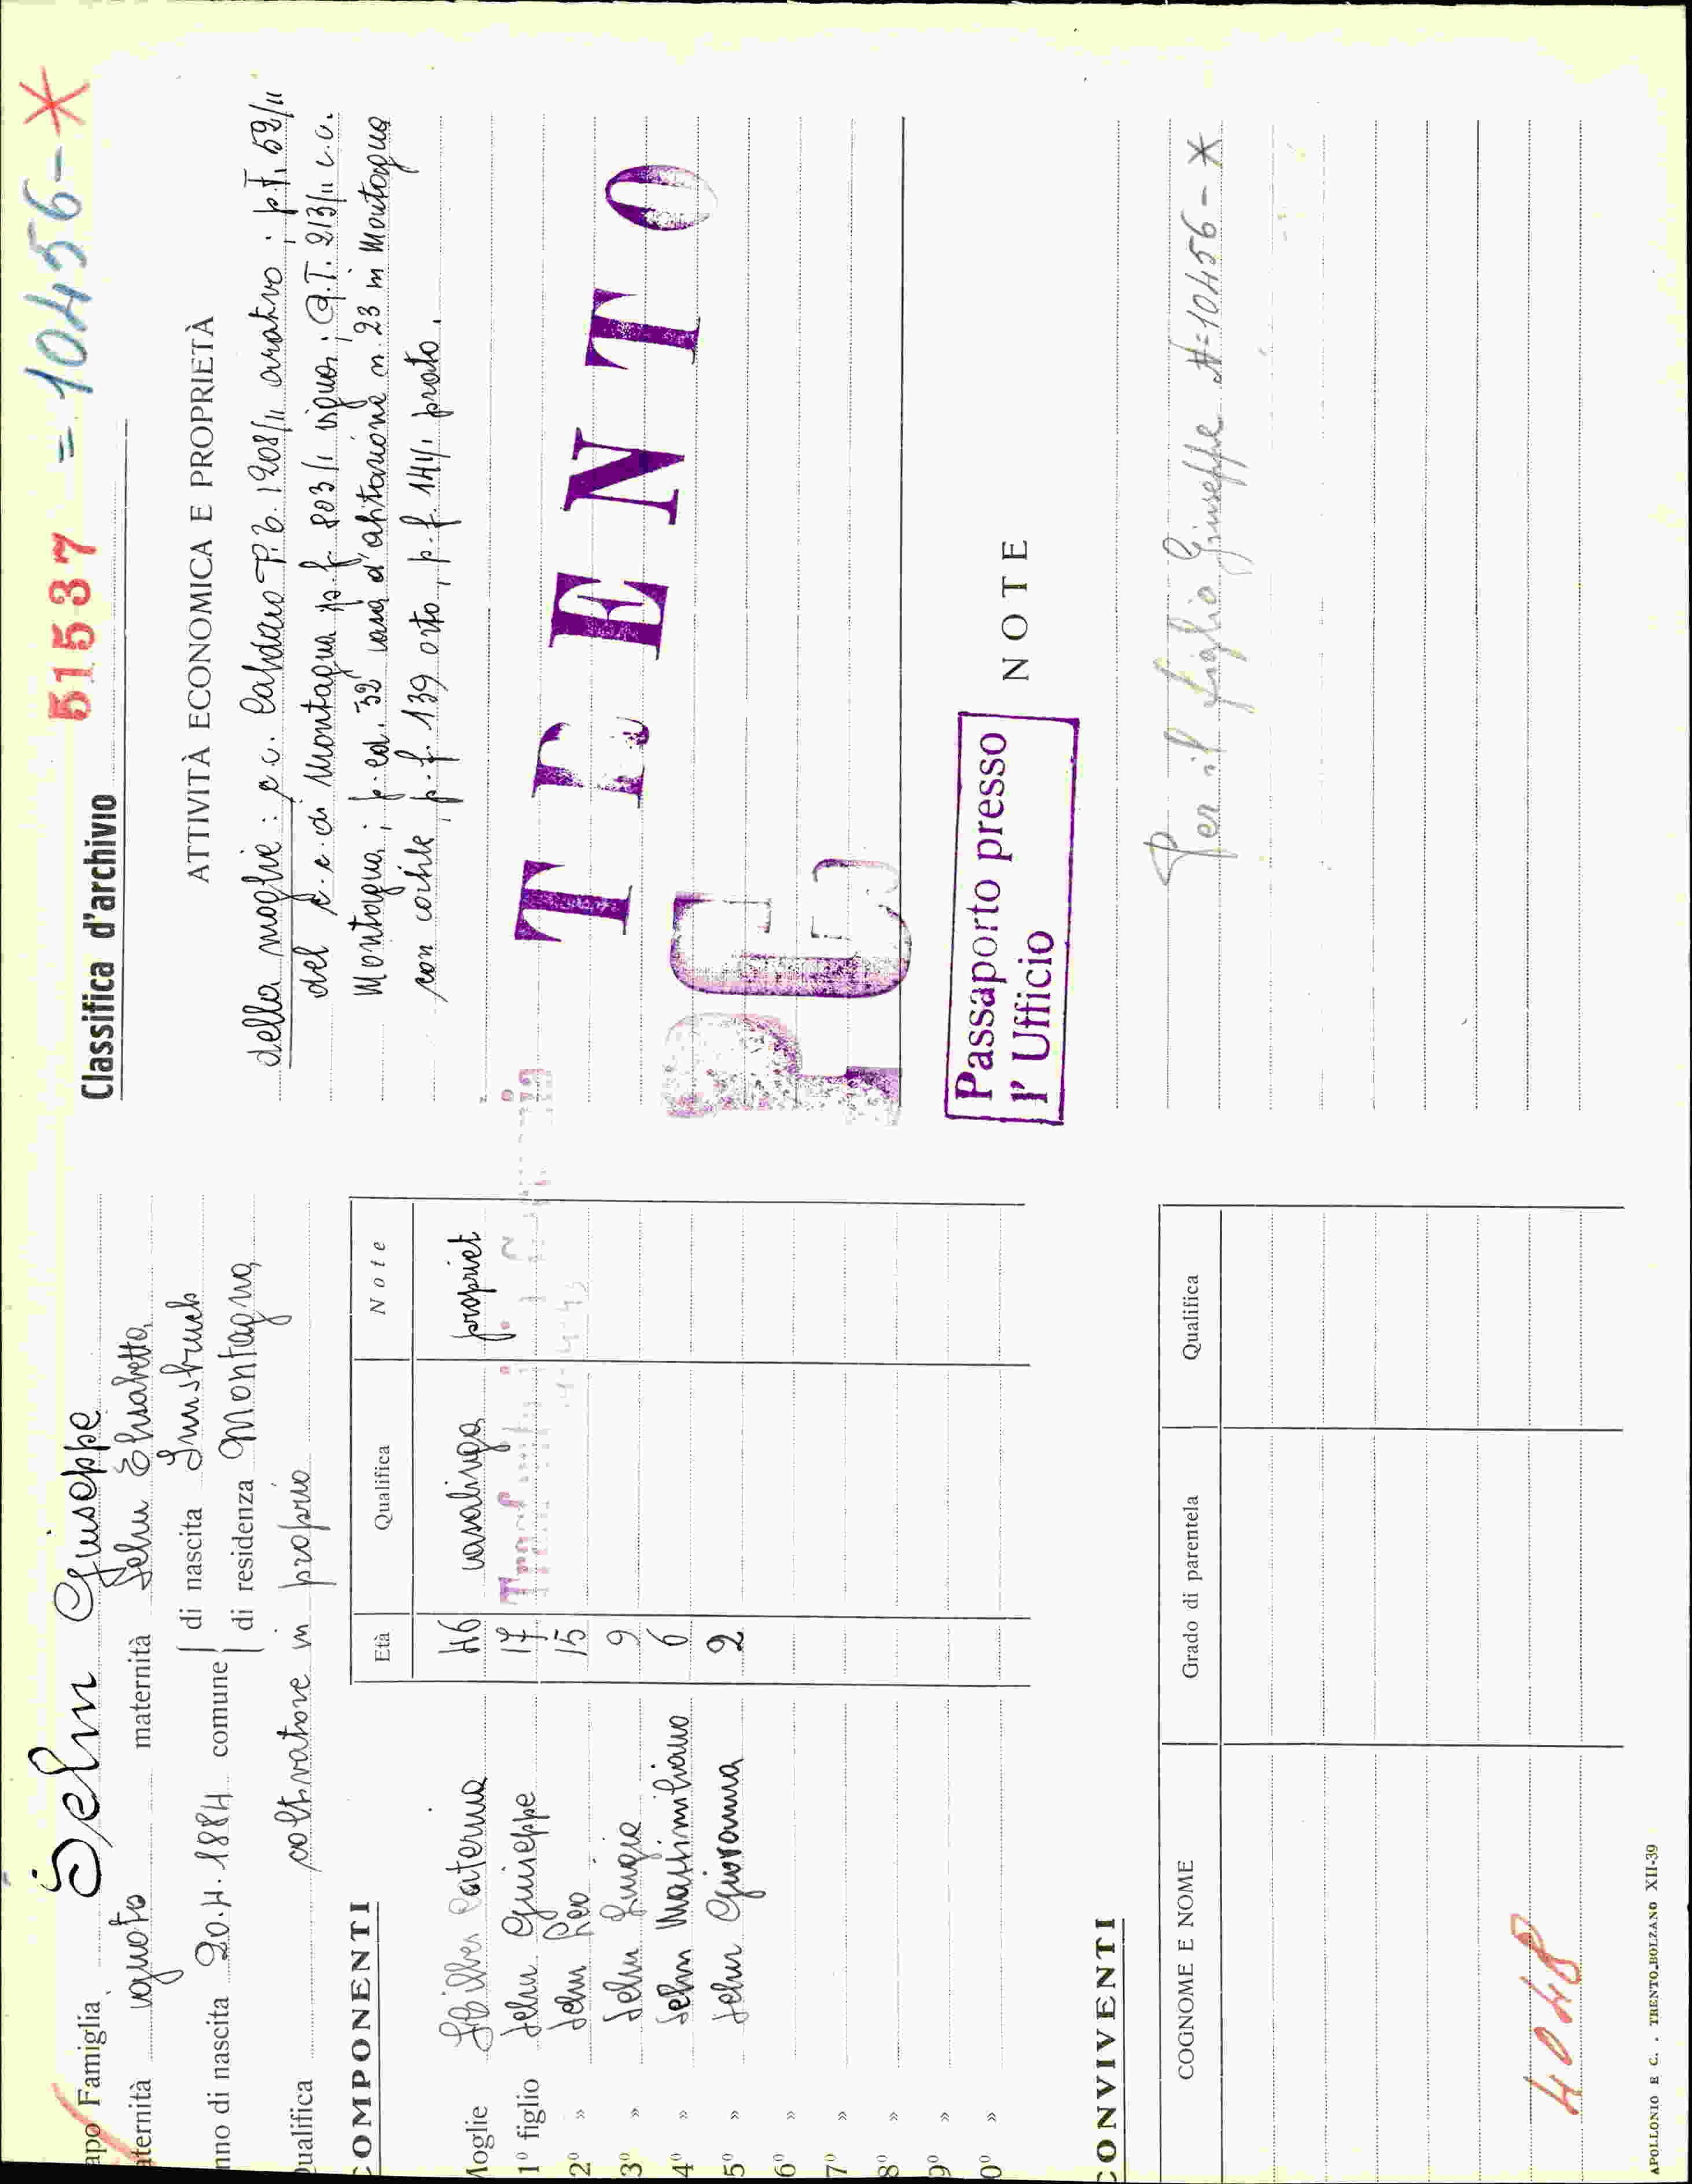 apo Famiglia Sehn Giuseppe
aternità ignoto maternità Sehn Elisabetta
nno di nascita 20.4.1884 comune di nascita Innsbruck
di residenza Montagna
ualifica coltivatore in proprio
COMPONENTI
Età Qualifica Note
Moglie Caterina 46 casalinga propriet
1º figlio Sehn Giuseppe 17
2º » Sehn Leo 15
3º » Sehn Luigia 9
4º » Sehn Massimiliano 6
5º » Sehn Giovanna 2
6º »
7º »
8º »
9º »
0º »
CONVIVENTI
COGNOME E NOME Grado di parentela Qualifica
4048
APOLLONIO E C. . TRENTO-BOLZANO XII-39
Classifica d'archivio 51537 = 10456-*
ATTIVITÀ ECONOMICA E PROPRIETÀ
della moglie: c.c. Caldaro P.T. 1208/II arativo; p.T. 52/II
del c.c. di Montagna p.f. 803/1 vigna; P.T. 213/II c.c.
Montagna; p.ed. 32 casa d'abitazione n. 23 in Montagna
con cortile, p.f. 139 orto, p.f. 144/1 prato.
TEENTO
PG
Passaporto presso
l' Ufficio
NOTE
Per il figlio Giuseppe #=10456-*